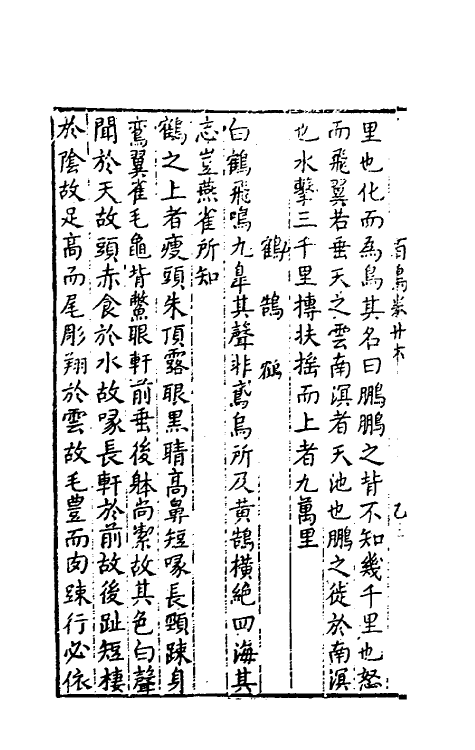 百鳥祭廿六
乙二
里也化而為鳥其名曰鵬鵬之背不知幾千里也怒
而飛翼若垂天之雲南溟者天池也鵬之徙於南溟
也水擊三千里搏扶搖而上者九萬里
鶴鵠
白鶴飛鳴九皐其聲非鳶烏所及黄鵠橫絶四海其
志豈燕雀所知
鶴之上者瘦頭朱頂露眼黑睛高鼻短喙長頸踈身
鸞翼雀毛龜背鱉眼軒前垂後躰尚潔故其色白聲
聞於天故頭赤食於水故喙長軒於前故後趾短棲
於陰故足高而尾彫翔於雲故毛豊而肉踈行必依